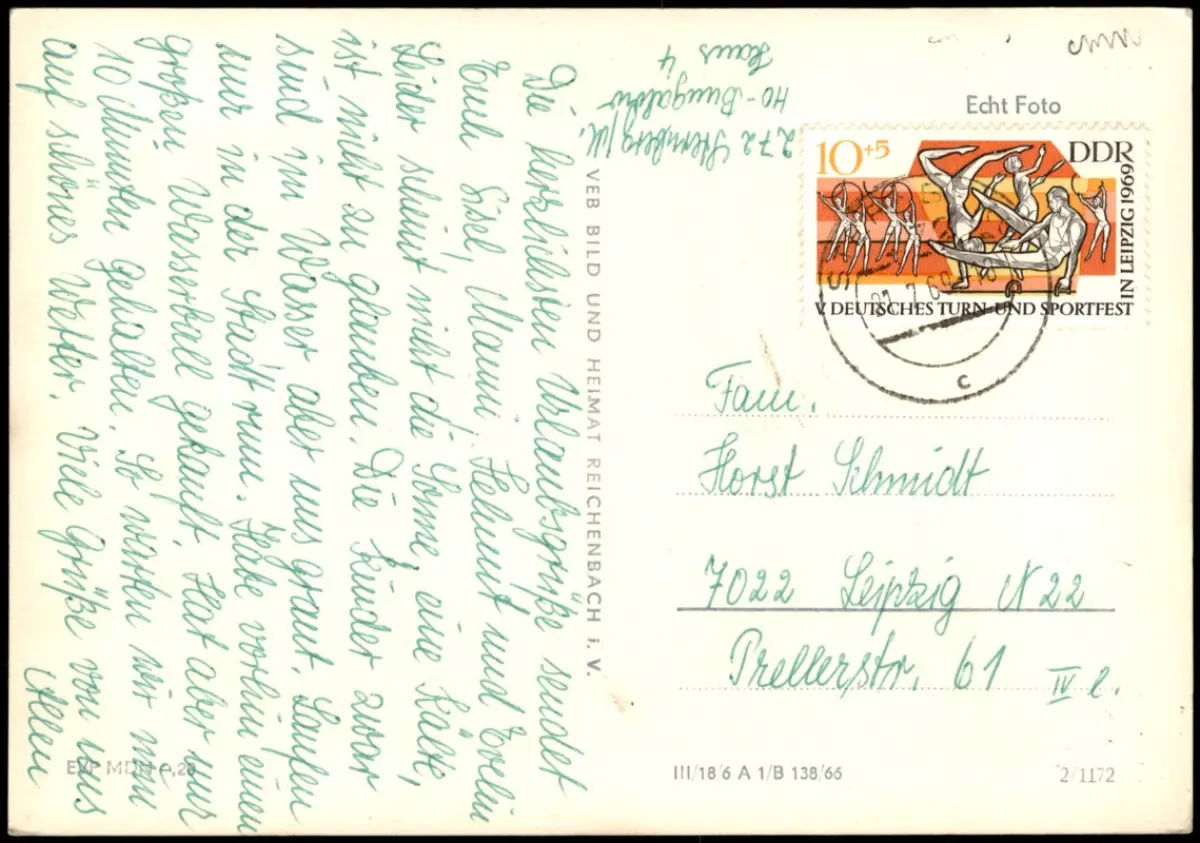 Die herzlichsten Urlaubsgrüße sendet
Euch Sisel, Mami, Helmut und Evelin
Leider scheint nicht die Sonne eine Kälte,
ist nicht zu glauben. Die Kinder zwar
sind im Wasser aber uns graut. Laufen
nur in der Stadt rum. Habe vorhin einen
großen Wasserball gekauft. Hat aber nur
10 Minuten gehalten. So warten wir nun
auf schönes Wetter. Viele Grüße von uns
Allen
272 Sternberg/M.
HO-Bungalow
Haus 4
VEB BILD UND HEIMAT REICHENBACH i. V.
Echt Foto
10+5
DDR
V. DEUTSCHES TURN- UND SPORTFEST
IN LEIPZIG 1969
c
Fam.
Horst Schmidt
7022 Leipzig N 22
Prellerstr. 61 IV l.
EVP MDN 0,20
III/18/6 A 1/B 138/66
2/1172